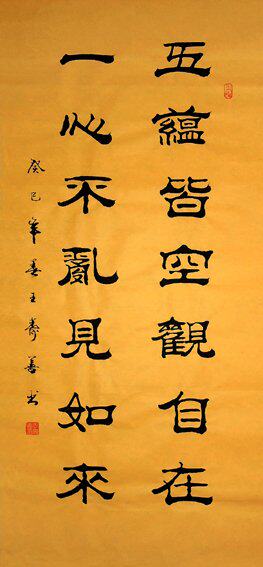 五蘊皆空觀自在
一心不亂見如來
癸巳年春王壽善書